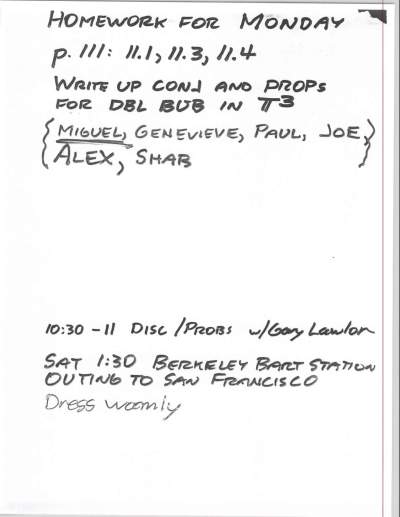 HOMEWORK FOR MONDAY
p. 111: 11.1, 11.3, 11.4
WRITE UP CONJ AND PROPS
FOR DBL BUB IN T3
{MIGUEL, GENEVIEVE, PAUL, JOE,
ALEX, SHAB}
10:30-11 DISC/PROBS w/Gary Lawlor
SAT 1:30 BERKELEY BART STATION
OUTING TO SAN FRANCISCO
Dress warmly